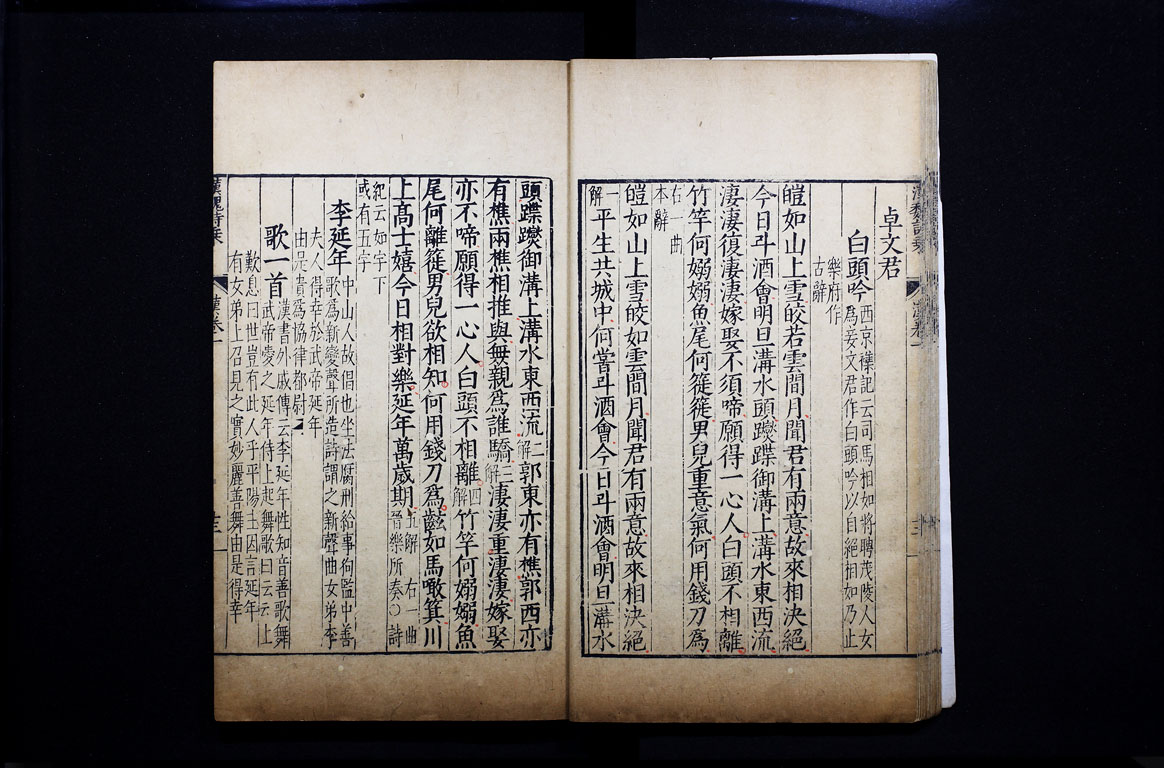 卓文君
白頭吟西京襍記云司馬相如將聘茂陵人女
爲妾文君作白頭吟以自絕相如乃止
樂府作
古辭
皚如山上雪皎若雲間月聞君有兩意故來相決絕
今日斗酒會明旦溝水頭躞蹀御溝上溝水東西流
淒淒復淒淒嫁娶不須啼願得一心人白頭不相離
竹竿何嫋嫋魚尾何簁簁男兒重意氣何用錢刀爲
右一曲
本辭
皚如山上雪皎如雲間月聞君有兩意故來相決絕
一解平生共城中何嘗斗酒會今日斗酒會明旦溝水
頭蹀躞御溝上溝水東西流二解郭東亦有樵郭西亦
有樵兩樵相推與無親爲誰驕三解淒淒重淒淒嫁娶
亦不啼願得一心人白頭不相離四解竹竿何嫋嫋魚
尾何離簁男兒欲相知何用錢刀爲如馬噉箕川
上高士嬉今日相對樂延年萬歲期五解右一曲
晉樂所奏○詩
紀云如字下
或有五字
李延年中山人故倡也坐法腐刑給事狗監中善
歌爲新變聲所造詩謂之新聲曲女弟李
夫人得幸於武帝延年
由是貴爲協律都尉
歌一首漢書外戚傳云李延年性知音善歌舞
武帝愛之延年侍上起舞歌曰云云上
歎息曰世豈有此人乎平陽主因言延年
有女弟上召見之實妙麗善舞由是得幸
漢魏詩乘 漢卷一 十三